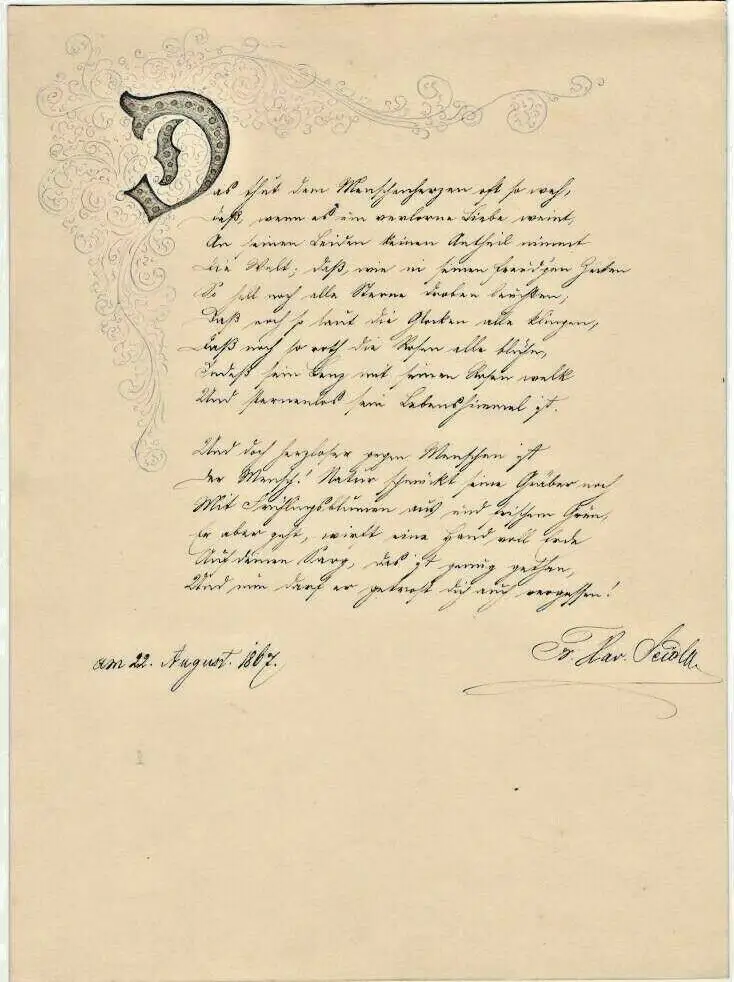 Das thut dem Menschenherzen oft so weh,
Daß, wenn es um verlorne Liebe weint,
An seinen Leiden keinen Antheil nimmt
Die Welt; daß, wie in seinen freud'gen Zeiten
So hell noch alle Sterne droben leuchten,
Daß noch so laut die Glocken alle klingen,
Daß noch so roth die Rosen alle blühn,
Indeß sein Lenz mit seinen Rosen welk
Und sternenlos sein Lebenshimmel ist.
Und doch herzloser gegen Menschen ist
Der Mensch! Natur schmückt seine Gräber noch
Mit Frühlingsblumen aus und frischem Grün,
Er aber geht, wirft eine Hand voll Erde
Auf deinen Sarg, das ist genug gethan,
Und nun darf er getrost dich auch vergessen!
am 22. August. 1867.
Fr. Xav. Seidl